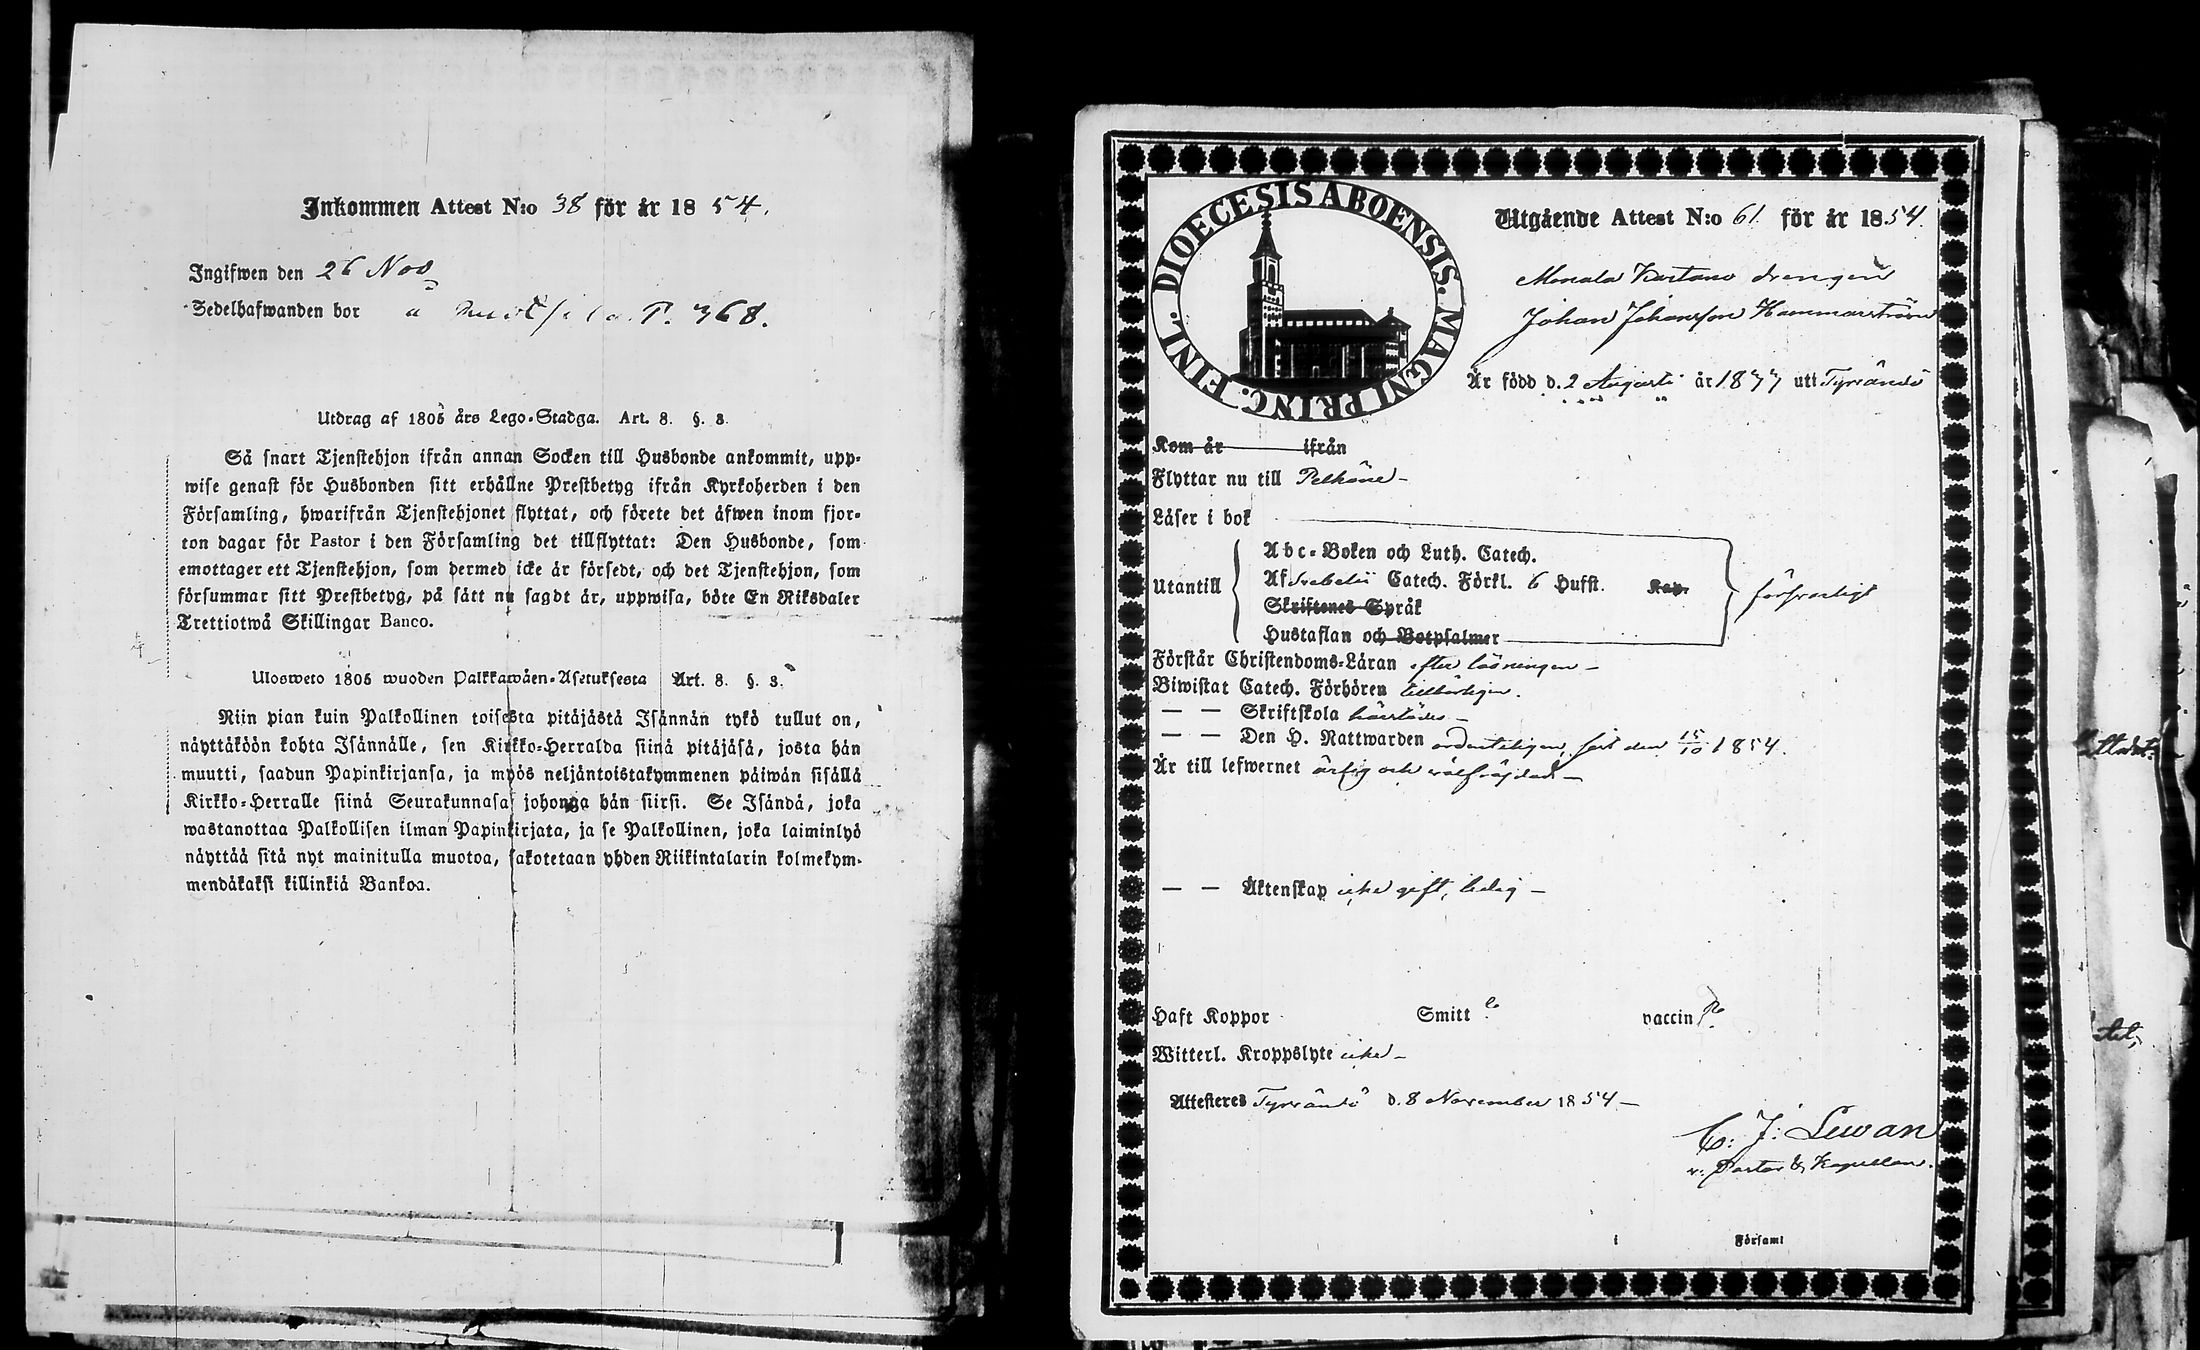 Inkommen Attest N:o 38 för år 1854.
Ingifwen den 26 Nov
Sedelhafwanden bor a P. 368.
Utdrag af 1805 års Lego-Stadga. Art. 8. §. 3.
Så snart Tjenstehjon ifrån annan Socken till Husbonde ankommit, upp-
wise genast för Husbonden sitt erhållne Prestbetyg ifrån Kyrkoherden i den
Församling, hwarifrån Tjenstehjonet flyttat, och förete det äfwen inom fjor-
ton dagar för Pastor i den Församling det tillflyttat: Den Husbonde, som
emottager ett Tjenstehjon, som dermed icke är försedt, och det Tjenstehjon, som
försummar sitt Prestbetyg, på sätt nu sagdt är, uppwisa, böte En Riksdaler
Trettiotwå Skillingar Banco.
Ulosweto 1805 wuoden Palkkawäen-Asetuksesta Art. 8. §. 3.
Niin pian kuin Palkollinen toisesta pitäjästä Isännän tykö tullut on,
näyttäköön kohta Isännälle, sen Kirkko-Herralda siinä pitäjäsä, josta hän
muutti, saadun Papinkirjansa, ja myös neljäntoistakymmenen päiwän sisällä
Kirkko-Herralle siinä Seurakunnasa johonga hän siirsi. Se Isändä, joka
wastanottaa Palkollisen ilman Papinkirjata, ja se Palkollinen, joka laiminlyö
näyttää sitä nyt mainitulla muotoa, sakotetaan yhden Riikintalarin kolmekym-
mendäkaksi killinkiä Bankoa.
DIOECESIS ABOENSIS. MAGNI PRINC. FINL.
Utgående Attest N:o 61 för år 1854.
Monala Kartano drengen
Johan Johansson Hammarström
Är född d. 2 Augusti år 1833 uti Tyrvändö
Kom år ifrån
Flyttar nu till Pelkäne -
Läser i bok
Utantill
Abc-Boken och Luth. Catech.
Af Svebelii Catech. Förkl. 6 Hufst. Kap.
Skriftenes Språk
Hustaflan och Botpsalmer
försvarligt
Förstår Christendoms-Läran efter läsningen -
Biwistat Catech. Förhören tillbörligen.
— — Skriftskola härstädes -
— — Den H. Nattwarden ordenteligen, sist den 15/10 1854.
Är till lefwernet ärlig och välfräjdad -
— — Äktenskap icke gift, ledig -
Haft Koppor Smitt vaccin
Witterl. Kroppslyte icke -
Attesteres Tyrvändö d. 8 November 1854 -
C: J: Lewan
v. Pastor & Kapellan.
i Församl